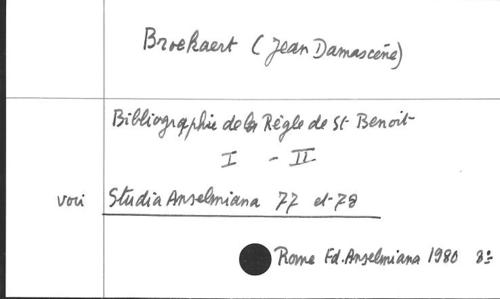 Broekaert (Jean Damascène)
Bibliographie de la Règle de St Benoit
I - II
voir Studia Anselmiana 77 et 78
Rome Ed. Anselmiana 1980 8°